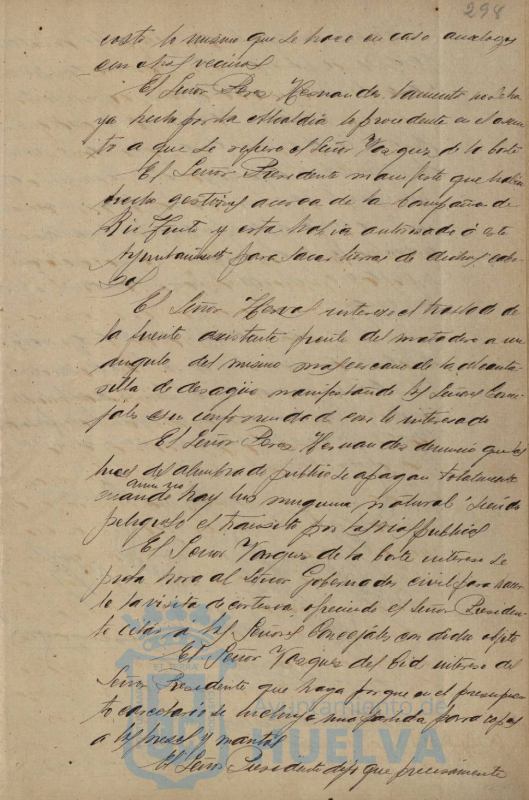 298
costo lo mismo que se hace en caso analogos
con otros vecinos
El Señor Perez Hernandez lamenta no se ha
ya hecho por la Alcaldia lo procedente en el asun
to a que se refiere el Señor Vazquez de la Corte
El Señor Presidente manifestó que habia
hecho gestiones acerca de la Compañia de
Rio Tinto y esta habia autorizado á este
Ayuntamiento para sacar tierras de dichos cabe
El Señor interesó el traslado de
la fuente existente frente del matadero a un
angulo del mismo mas cercano de la alcanta
rilla de desagüe manifestando los Señores Conce
jales su conformidad con lo interesado
El Señor Perez Hernandez denunció que las
luces del alumbrado publico se apagan totalmente
cuando aun no hay luz ninguna natural siendo
peligroso el transito por las vias publicas
El Señor Vazquez de la Corte interesó se
pida hora al Señor Gobernador civil para hacer
le la visita de cortesia, ofreciendo el Señor Presiden
te citar a los Señores Concejales con dicho objeto
El Señor Vazquez del Cid interesó del
Señor Presidente que haga porque en el presupues
to carcelario se incluya una partida para ropas
a los presos y mantas
El Señor Presidente dijo que precisamente
Ayuntamiento de
HUELVA